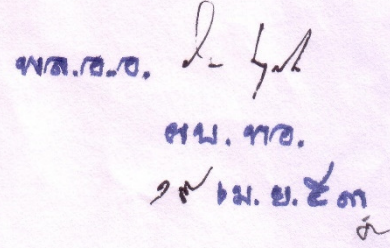 พล.อ.อ.
ผบ. ทอ.
๑๙ เม.ย. ๕๓